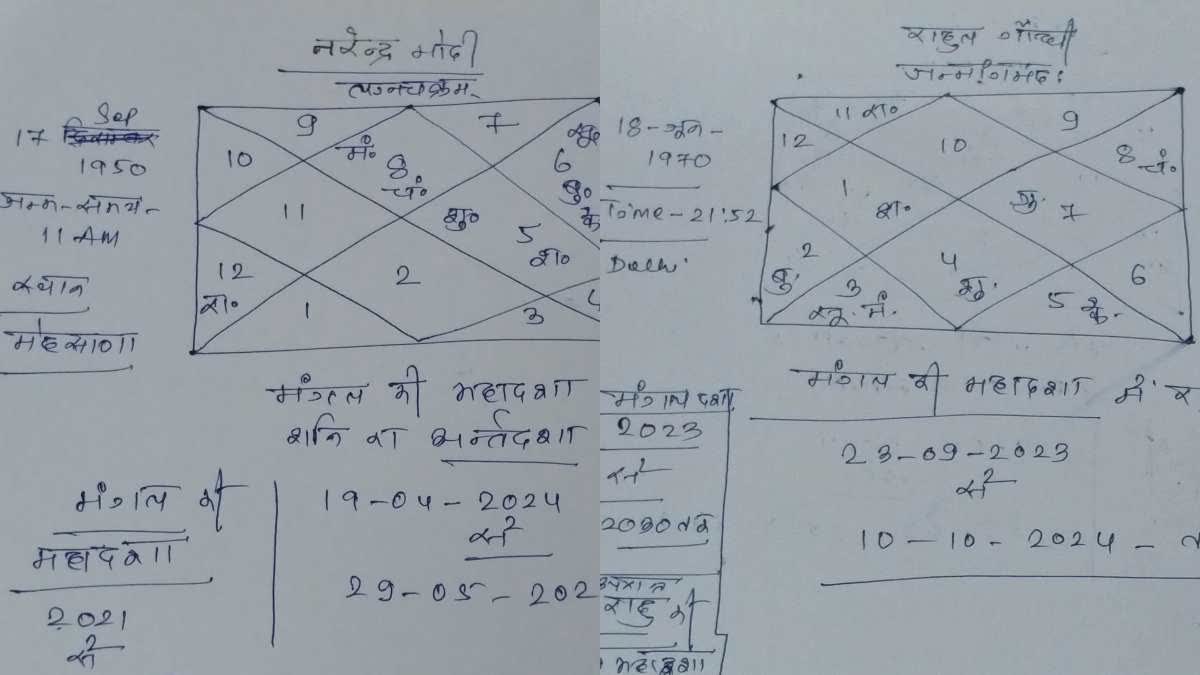 नरेन्द्र मोदी
लग्नचक्रम्
Sep
17
1950
जन्म-समय-
11 AM
स्थान
मेहसाणा
9
7
10
मं०
8
चं०
सू०
6
बु०
के
11
शु०
5
श०
12
रा०
2
1
3
4
मंगल की महादशा
शनि का अर्न्तदशा
मंगल की
महादशा
2021
से
19-04-2024
से
29-05-202
राहुल गाँन्धी
18-जून-
1970
Time-21:52
Delhi
11 रा०
9
12
10
8
चं०
1
श०
गु.
7
2
बु.
4
शु.
3
सू. मं.
5 के.
6
मंगल की महादशा में र
23-09-2023
से
10-10-2024-त
मंगल दशा
2023
से
2030 तक
राहु की
महादशा